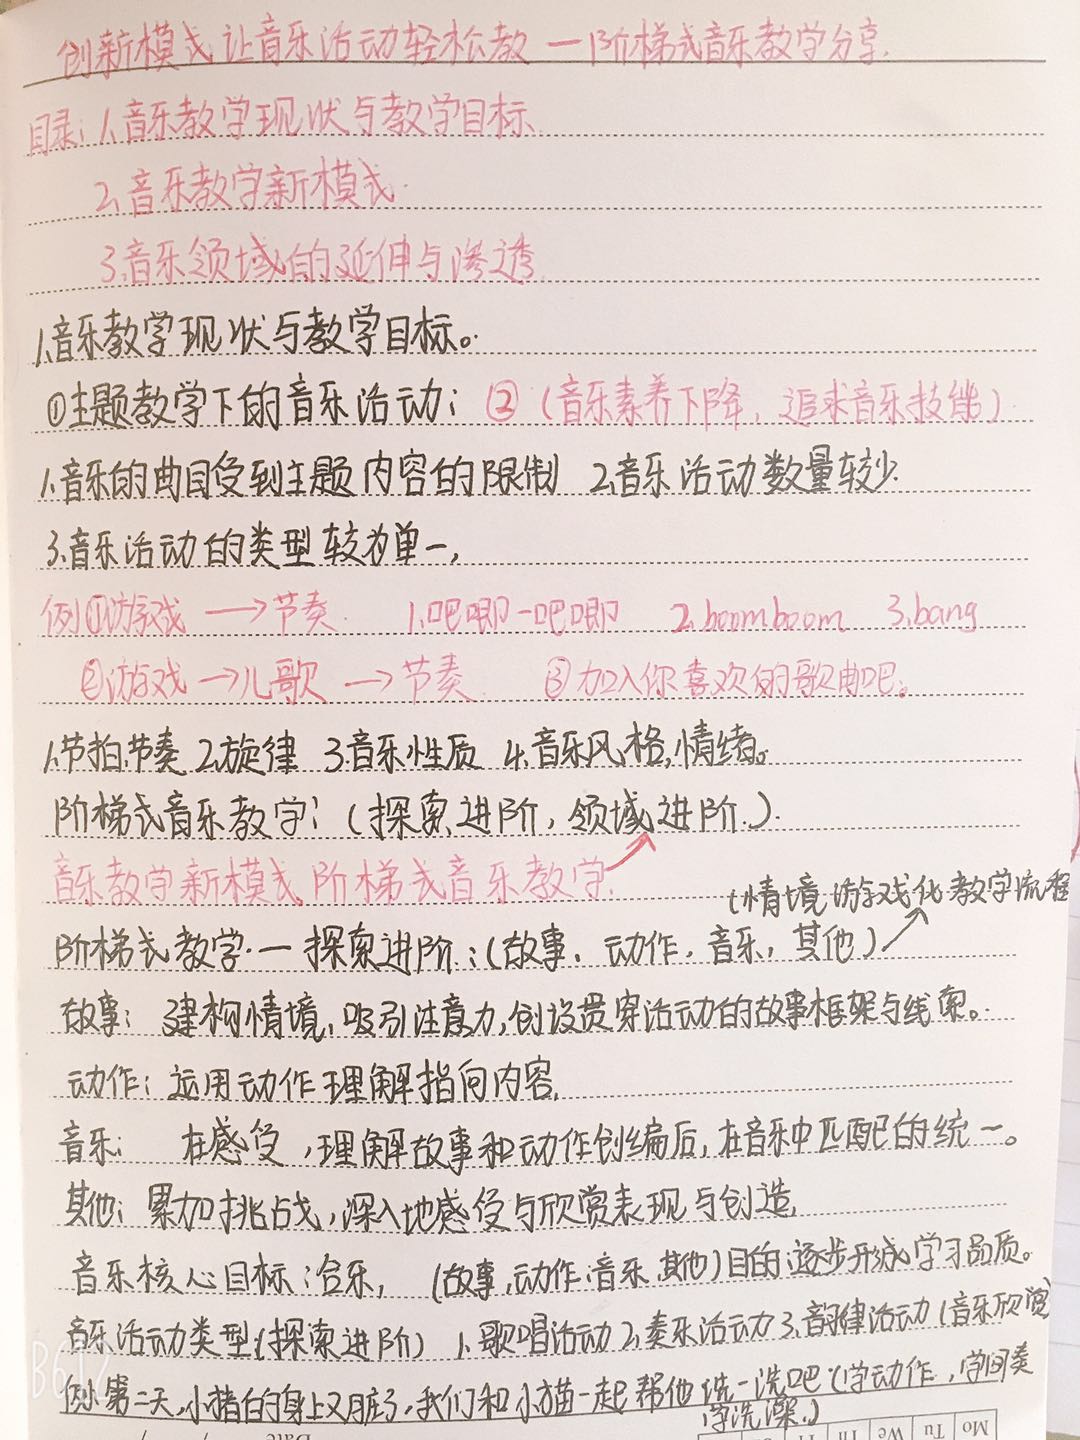 创新模式让音乐活动轻松教—阶梯式音乐教学分享.
目录:1.音乐教学现状与教学目标.
2.音乐教学新模式.
3.音乐领域的延伸与渗透.
1.音乐教学现状与教学目标。
①主题教学下的音乐活动; ②(音乐素养下降,追求音乐技能)
1.音乐的曲目受到主题内容的限制 2.音乐活动数量较少.
3.音乐活动的类型较为单一,
例①游戏→节奏. 1.吧唧-吧唧 2.boomboom 3.bang
②游戏→儿歌→节奏. ③加入你喜欢的歌曲吧。
1.节拍.节奏 2.旋律 3.音乐性质 4.音乐风格,情绪。
阶梯式音乐教学:(探索进阶,领域进阶.)
音乐教学新模式,阶梯式音乐教学.
(情境游戏化教学流程
阶梯式教学.一探索进阶:(故事.动作,音乐,其他)
故事:建构情境,吸引注意力,创设贯穿活动的故事框架与线索。
动作:运用动作理解指向内容,
音乐:在感受,理解故事和动作创编后,在音乐中匹配的统一。
其他:累加挑战,深入地感受与欣赏表现与创造,
音乐核心目标:合乐,(故事,动作.音乐.其他)目的:逐步形成学习品质。
音乐活动类型(探索进阶) 1.歌唱活动 2.奏乐活动 3.韵律活动(音乐欣赏)
例:第二天,小猪的身上又脏了,我们和小猫一起帮他洗一洗吧(学动作,学问类
学洗澡.)
Mo Tu We Th
Date
B612